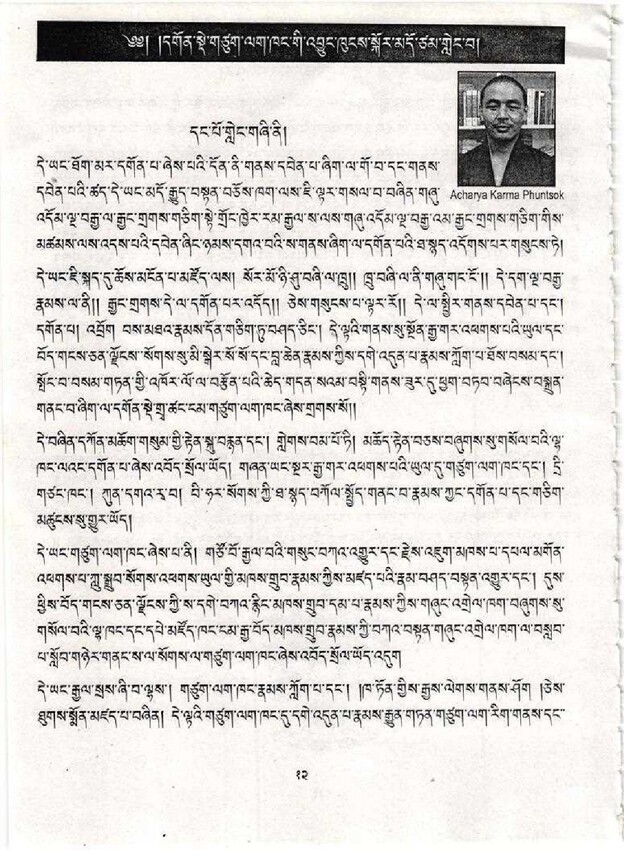 ༄༅། །དགོན་སྡེ་གཙུག་ལག་ཁང་གི་འབྱུང་ཁུངས་སྐོར་མདོ་ཙམ་གླེང་བ།
དང་པོ་གླེང་གཞི་ནི།
Acharya Karma Phuntsok
དེ་ཡང་ཐོག་མར་དགོན་པ་ཞེས་པའི་དོན་ནི་གནས་དབེན་པ་ཞིག་ལ་གོ་བ་དང་གནས་
དབེན་པའི་ཚད་དེ་ཡང་མདོ་རྒྱུད་བསྟན་བཅོས་ཁག་ལས་ཇི་ལྟར་གསལ་བ་བཞིན་གཞུ་
འདོམ་ལྔ་བརྒྱ་ལ་རྒྱང་གྲགས་གཅིག་སྟེ་གྲོང་ཁྱེར་རམ་རྒྱལ་ས་ལས་གཞུ་འདོམ་ལྔ་བརྒྱ་འམ་རྒྱང་གྲགས་གཅིག་གིས་
མཚམས་ལས་འདས་པའི་དབེན་ཞིང་ཉམས་དགའ་བའི་ས་གནས་ཞིག་ལ་དགོན་པའི་ཐ་སྙད་འདོགས་པར་གསུངས་ཏེ།
དེ་ཡང་ཇི་སྐད་དུ་ཆོས་མངོན་པ་མཛོད་ལས། སོར་མོ་ཉི་ཤུ་བཞི་ལ་ཁྲུ།། ཁྲུ་བཞི་ལ་ནི་གཞུ་གང་ངོ་།། དེ་དག་ལྔ་བརྒྱ་
རྣམས་ལ་ནི།། རྒྱང་གྲགས་དེ་ལ་དགོན་པར་འདོད།། ཅེས་གསུངས་པ་ལྟར་རོ།། དེ་ལ་སྤྱིར་གནས་དབེན་པ་དང་།
དགོན་པ། འབྲོག བས་མཐའ་རྣམས་དོན་གཅིག་ཏུ་བཤད་ཅིང་། དེ་ལྟའི་གནས་སུ་སྔོན་རྒྱ་གར་འཕགས་པའི་ཡུལ་དང་
བོད་གངས་ཅན་ལྗོངས་སོགས་སུ་མི་སྒེར་སོ་སོ་དང་བླ་ཆེན་རྣམས་ཀྱིས་དགེ་འདུན་པ་རྣམས་ཀློག་པ་ཐོས་བསམ་དང་།
སྤོང་བ་བསམ་གཏན་གྱི་འཁོར་ལོ་ལ་བརྩོན་པའི་ཆེད་གདན་སའམ་བསྟི་གནས་ཟུར་དུ་ཕྱག་བཏབ་བཞེངས་བསྐྲུན་
གནང་བ་ཞིག་ལ་དགོན་སྡེ་གྲྭ་ཚང་ངམ་གཙུག་ལག་ཁང་ཞེས་གྲགས་སོ།།
དེ་བཞིན་དཀོན་མཆོག་གསུམ་གྱི་རྟེན་སྐུ་བརྙན་དང་། གླེགས་བམ་པོ་ཏི། མཆོད་རྟེན་བཅས་བཞུགས་སུ་གསོལ་བའི་ལྷ་
ཁང་ལའང་དགོན་པ་ཞེས་འབོད་སྲོལ་ཡོད། གཞན་ཡང་སྔར་རྒྱ་གར་འཕགས་པའི་ཡུལ་དུ་གཙུག་ལག་ཁང་དང་། དྲི་
གཙང་ཁང་། ཀུན་དགའ་ར་བ། བི་ཧར་སོགས་ཀྱི་ཐ་སྙད་བཀོལ་སྤྱོད་གནང་བ་རྣམས་ཀྱང་དགོན་པ་དང་གཅིག་
མཚུངས་སུ་གྱུར་ཡོད།
དེ་ཡང་གཙུག་ལག་ཁང་ཞེས་པ་ནི། གཙོ་བོ་རྒྱལ་བའི་གསུང་བཀའ་འགྱུར་དང་རྗེས་འཇུག་མཁས་པ་དཔལ་མགོན་
འཕགས་པ་ཀླུ་སྒྲུབ་སོགས་འཕགས་ཡུལ་གྱི་མཁས་གྲུབ་རྣམས་ཀྱིས་མཛད་པའི་རྣམ་བཤད་བསྟན་འགྱུར་དང་། དུས་
ཕྱིས་བོད་གངས་ཅན་ལྗོངས་ཀྱི་ས་དགེ་བཀའ་རྙིང་མཁས་གྲུབ་དམ་པ་རྣམས་ཀྱིས་གཞུང་འགྲེལ་ཁག་བཞུགས་སུ་
གསོལ་བའི་ལྷ་ཁང་དང་དཔེ་མཛོད་ཁང་ངམ་རྒྱ་བོད་མཁས་གྲུབ་རྣམས་ཀྱི་བཀའ་བསྟན་གཞུང་འགྲེལ་ཁག་ལ་བསླབ་
པ་སློབ་གཉེར་གནང་ས་ལ་སོགས་ལ་གཙུག་ལག་ཁང་ཞེས་འབོད་སྲོལ་ཡོད་འདུག
དེ་ཡང་རྒྱལ་སྲས་ཞི་བ་ལྷས། གཙུག་ལག་ཁང་རྣམས་ཀློག་པ་དང་། །ཁ་ཏོན་གྱིས་རྒྱས་ལེགས་གནས་ཤོག །ཅེས་
ཐུགས་སྨོན་མཛད་པ་བཞིན། དེ་ལྟའི་གཙུག་ལག་ཁང་དུ་དགེ་འདུན་པ་རྣམས་རྒྱུན་གཏན་གཙུག་ལག་རིག་གནས་དང་
༡༢